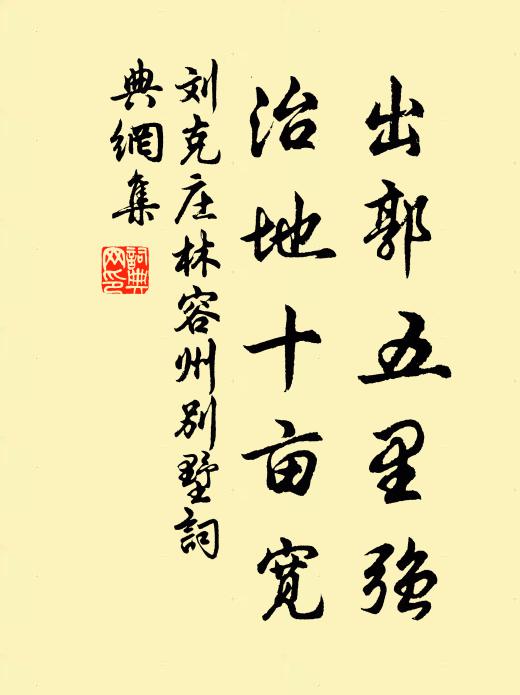 出郭五里强
治地十亩宽
刘克庄林容州别墅詞
典網集
詞典
网印